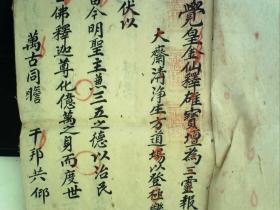 覺皇金仙釋雄寶壇為三靈報
大齋清淨生方道場以登極樂
伏以
今明聖主蕙三五之德以治民
佛釋迦尊化億萬之身而度世
萬古同瞻
千邦共仰